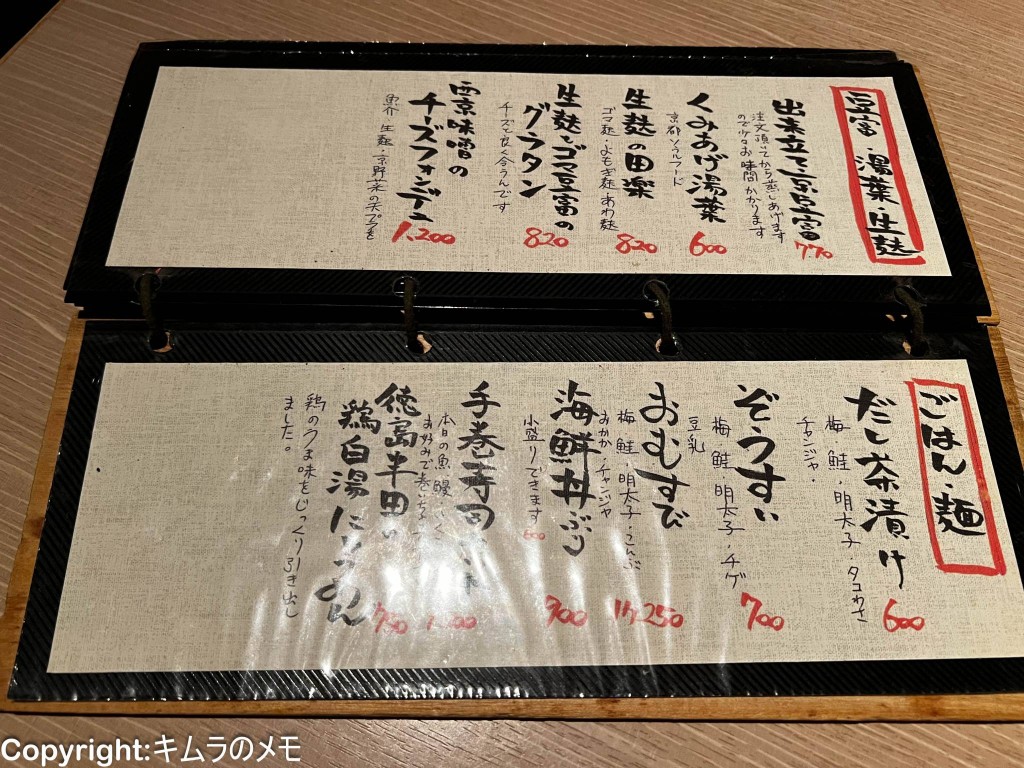 豆富・湯葉・生麩
出来立て京豆富
注文頂いてから蒸しあげます
ので少々お時間かかります
770
くみあげ湯葉
京都ソウルフード
600
生麩の田楽
ゴマ麩・よもぎ麩・あわ麩
820
生麩とゴマ豆富の
グラタン
チーズと良く合うんです
820
西京味噌の
チーズフォンデュ
魚介・生麩・京野菜の天プラを
1,200
ごはん・麺
だし茶漬け
梅・鮭・明太子・タコわさ
チャンジャ
600
ぞうすい
梅・鮭・明太子・チゲ
豆乳
700
おむすび
梅・鮭・明太子・こんぶ
おかか・チャンジャ
1ケ250
海鮮丼ぶり
小盛りできます
600
900
手巻寿司
本日の魚、鰻、いくら
お好みで巻いちょ
徳島半田の
鶏白湯にゅうめん
鶏のうま味をじっくり引き出し
ました。
750
Copyright:キムラのメモ